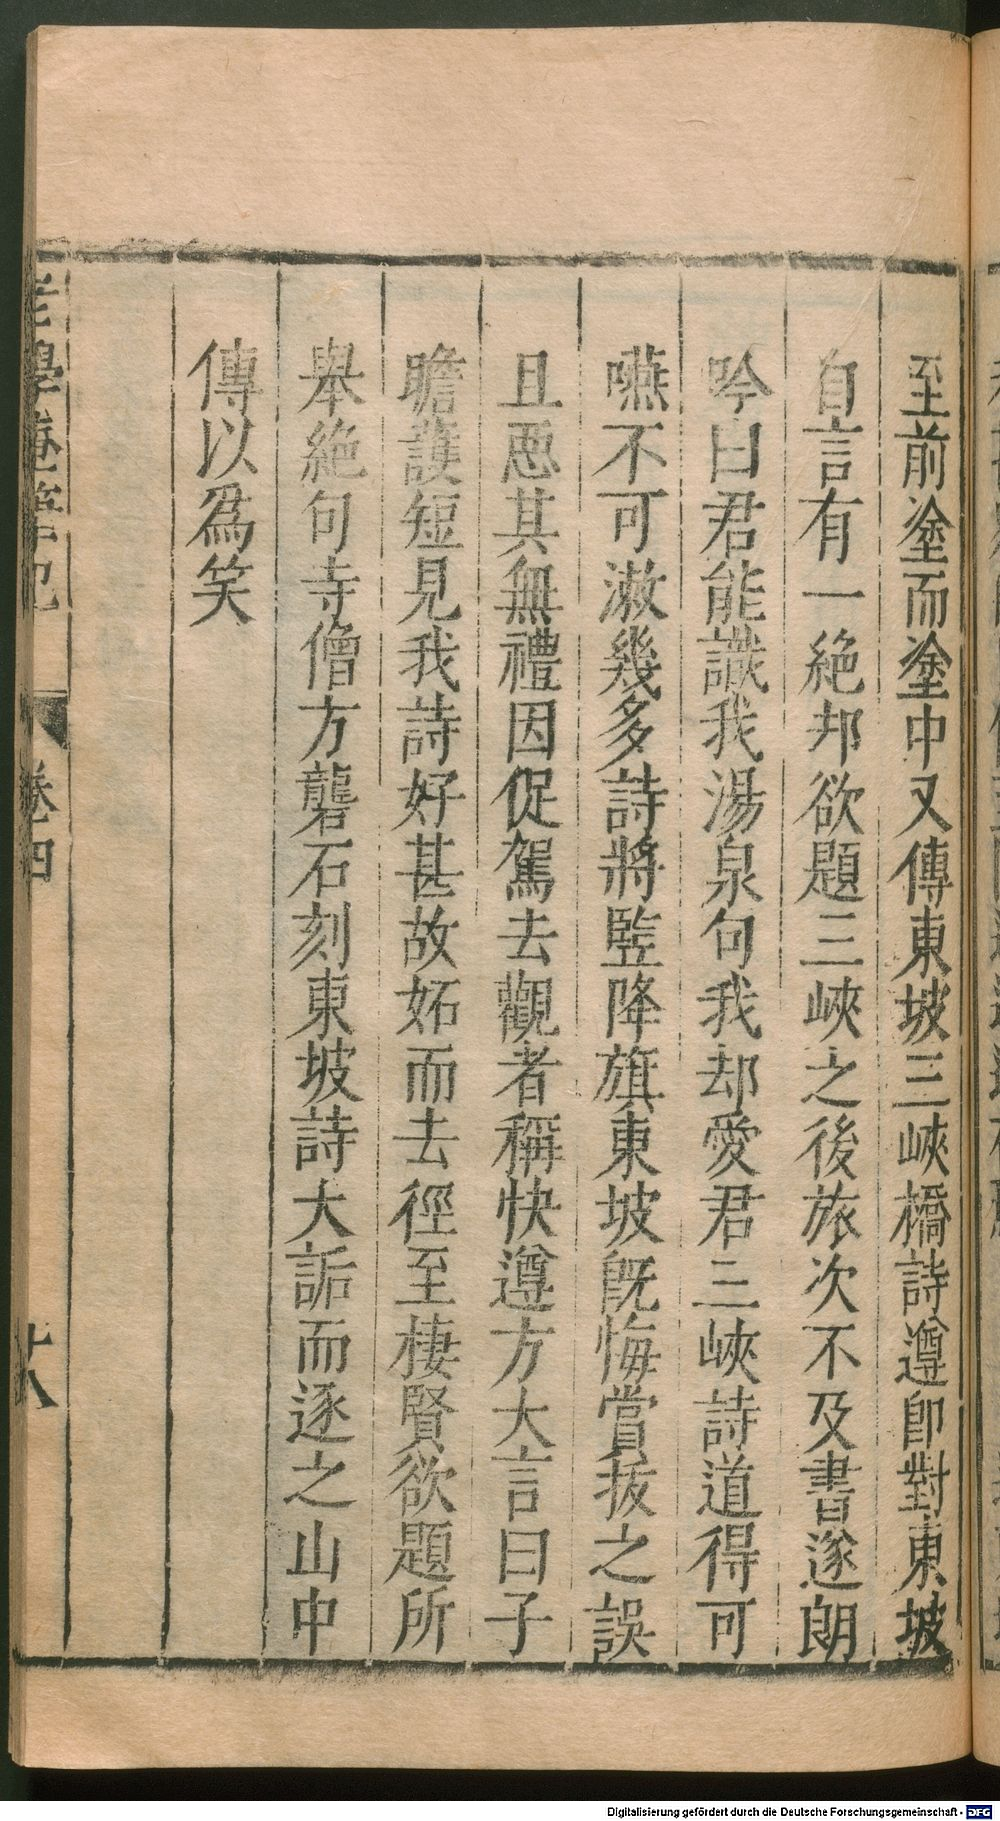 至前塗而塗中又傳東坡三峽橋詩遵卽對東坡
自言有一絶却欲題三峽之後旅次不及書遂朗
吟曰君能識我湯泉句我却愛君三峽詩道得可
嚥不可漱幾多詩將監降旗東坡旣悔賞拔之誤
且惡其無禮因促駕去觀者稱快遵方大言曰子
瞻護短見我詩好甚故妬而去徑至棲賢欲題所
舉絶句寺僧方礱石刻東坡詩大詬而逐之山中
傳以爲笑
老學庵筆記 卷四 十八
Digitalisierung gefördert durch die Deutsche Forschungsgemeinschaft - DFG